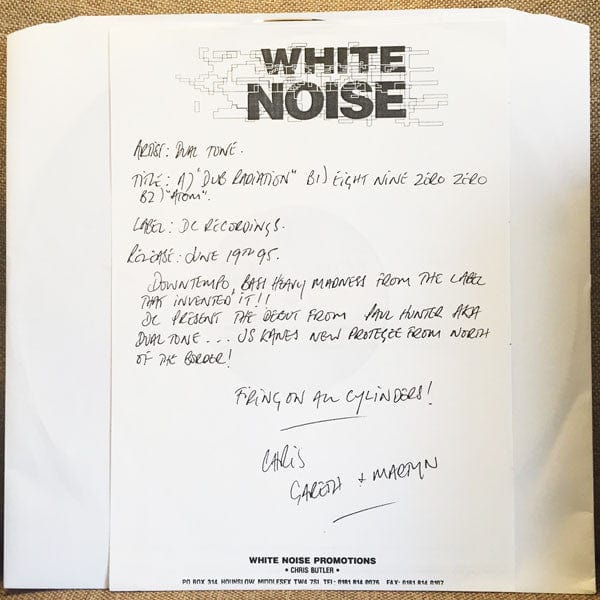 WHITE
NOISE
ARTIST: DUAL TONE.
TITLE: A) "DUB RADIATION" B1) EIGHT NINE ZERO ZERO
B2) "ATOM".
LABEL: DC RECORDINGS.
RELEASE: JUNE 19TH 95.
DOWNTEMPO, BASS HEAVY MADNESS FROM THE LABEL
THAT INVENTED IT!!
DC PRESENT THE DEBUT FROM PAUL HUNTER AKA
DUAL TONE... JS KANES NEW PROTEGEE FROM NORTH
OF THE BORDER!
FIRING ON ALL CYLINDERS!
CHRIS
GARETH + MARTYN
WHITE NOISE PROMOTIONS
• CHRIS BUTLER •
PO BOX 314, HOUNSLOW, MIDDLESEX TW4 7SL TEL: 0181 814 0076 FAX: 0181 814 0107